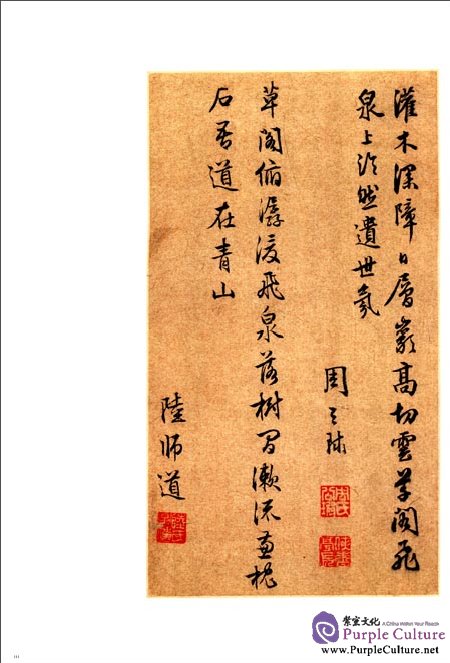 灌木深障日層巖高切雲草閣飛
泉上泠然遺世氛
周天球
草閣俯潺湲飛泉落樹間漱流枕
石吾道在青山
陸師道
紫宣文化 A China Within Your Reach
Purple Culture
www.PurpleCulture.net